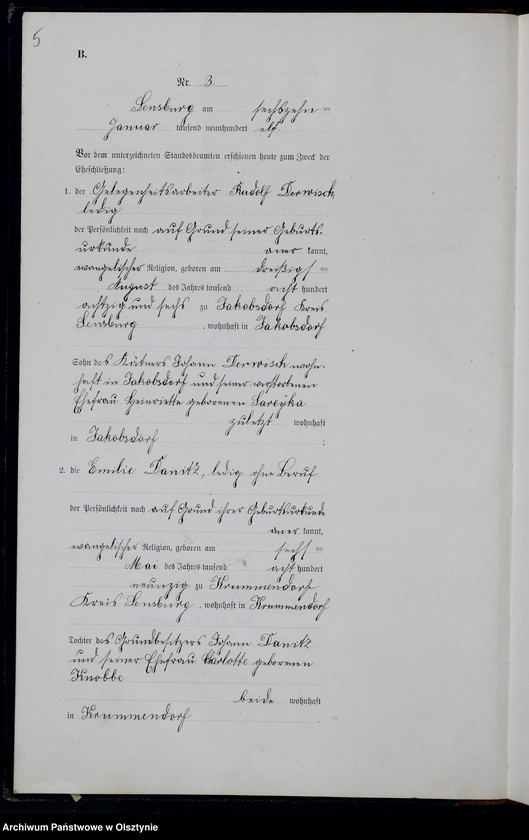 5
B.
Nr. 3.
Sensburg am sechszehn ten
Januar tausend neunhundert elf
Vor dem unterzeichneten Standesbeamten erschienen heute zum Zweck der
Eheschließung:
1. der Gelegenheitsarbeiter Rudolf Derwisch,
ledig
der Persönlichkeit nach auf Grund seiner Geburts-
urkunde aner kannt,
evangelischer Religion, geboren am dreißigs ten
August des Jahres tausend acht hundert
achtzig und sechs zu Jakobsdorf Kreis
Sensburg, wohnhaft in Jakobsdorf
Sohn des Kätners Johann Derwisch wohn-
haft in Jakobsdorf und seiner verstorbenen
Ehefrau Henriette geborenen Sareyka
zuletzt wohnhaft
in Jakobsdorf ;
2. die Emilie Danitz, ledig ohne Beruf
der Persönlichkeit nach auf Grund ihrer Geburtsurkunde
aner kannt,
evangelischer Religion, geboren am sechs ten
Mai des Jahres tausend acht hundert
neunzig zu Krummendorf
Kreis Sensburg, wohnhaft in Krummendorf
Tochter des Grundbesitzers Johann Danitz
und seiner Ehefrau Charlotte geborenen
Knobbe
beide wohnhaft
in Krummendorf
Archiwum Państwowe w Olsztynie